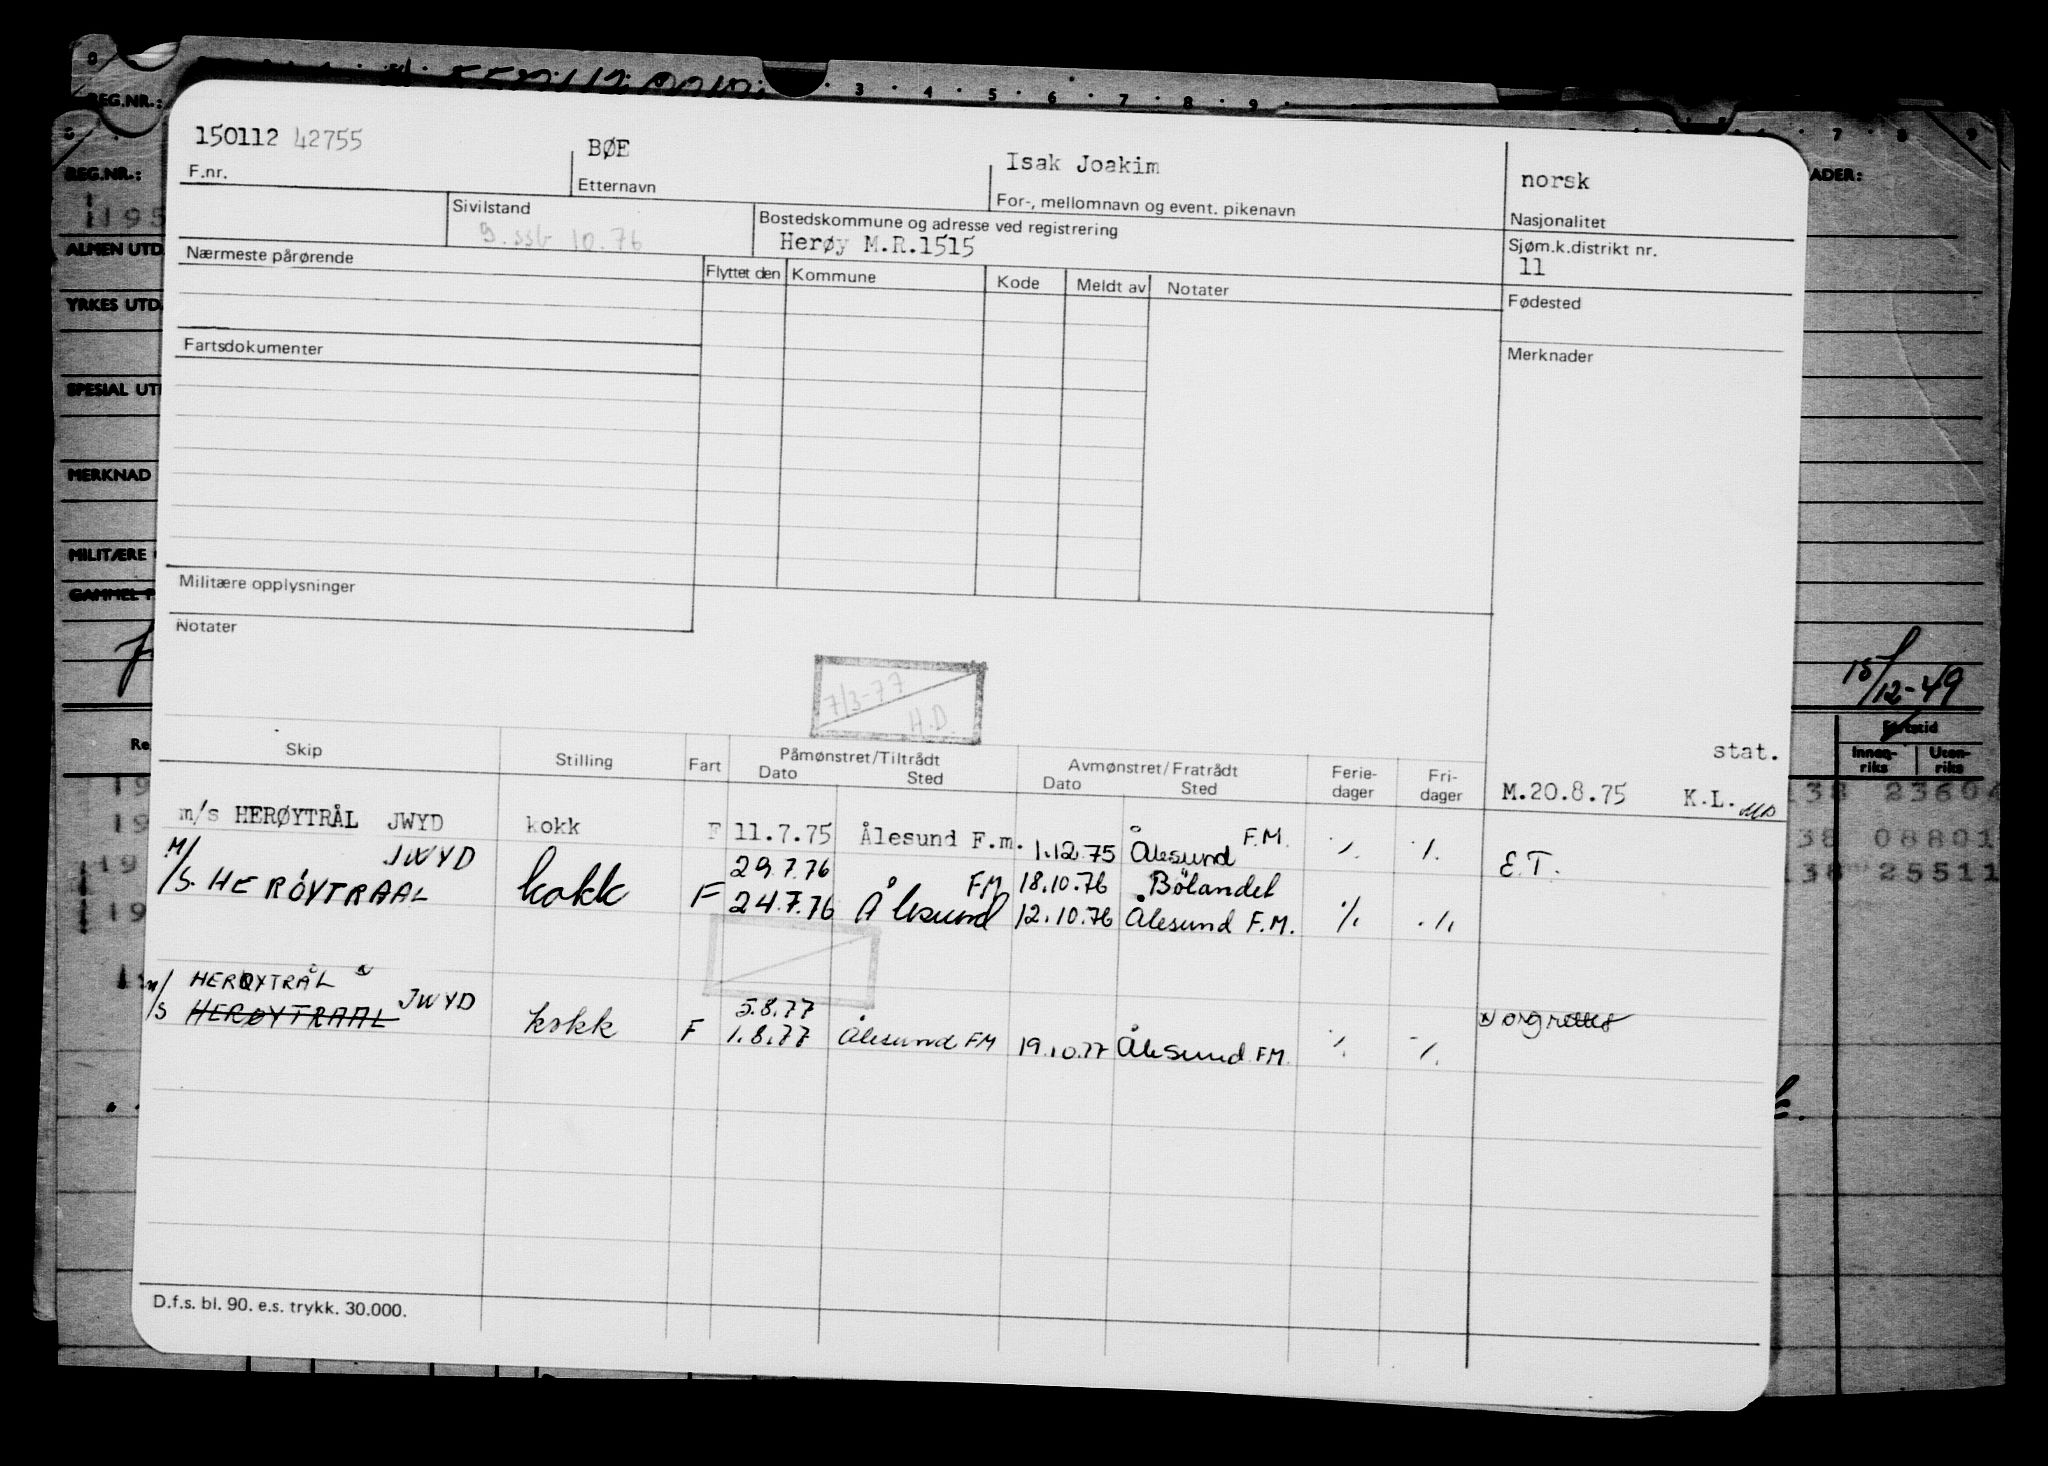 3 4 5 6 7 8 9
REG.NR.:
7 8 9
REG.NR.:
ADER:
ALMEN UTD.
YRKES UTD.
MERKNAD
MILITÆRE
15/12-49
Innen-riks Uten-riks
23604
08801
38 25511
150112 42755 BØE Isak Joakim norsk
F.nr. Etternavn For-, mellomnavn og event. pikenavn Nasjonalitet
Sivilstand Bostedskommune og adresse ved registrering Sjøm.k.distrikt nr.
g. ssb 10.76 Herøy M.R.1515 11
Nærmeste pårørende Flyttet den Kommune Kode Meldt av Notater Fødested
Fartsdokumenter Merknader
Militære opplysninger
Notater
7/3-77
H.D.
Skip Stilling Fart Påmønstret/Tiltrådt Avmønstret/Fratrådt Ferie- Fri- stat.
Dato Sted Dato Sted dager dager M.20.8.75 K.L.
m/s HERØYTRÅL JWYD kokk F 11.7.75 Ålesund F.m. 1.12.75 Ålesund F.M. ./. ./.
JWYD 29.7.76 FM 18.10.76 Bölandet E.T.
M/S. HERÖYTRAAL kokk F 24.7.76 Ålesund 12.10.76 Ålesund F.M. ./. ./.
HERØYTRÅL x
JWYD 5.8.77
m/s HERØYTRAAL kokk F 1.8.77 Ålesund FM 19.10.77 Ålesund FM. ./. ./.
D.f.s. bl. 90. e.s. trykk. 30.000.